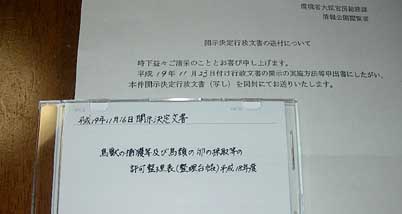 環境省大臣官房総務課
情報公開閲覧室
開示決定行政文書の送付について
時下益々ご清栄のこととお喜び申し上げます。
平成19年11月25日付け行政文書の開示の実施方法等申出書にしたがい、
本件開示決定行政文書（写し）を同封にてお送りいたします。
平成19年11月16日開示決定文書
鳥獣の捕獲等及び鳥類の卵の採取等の
許可整理表(整理台帳)平成18年度